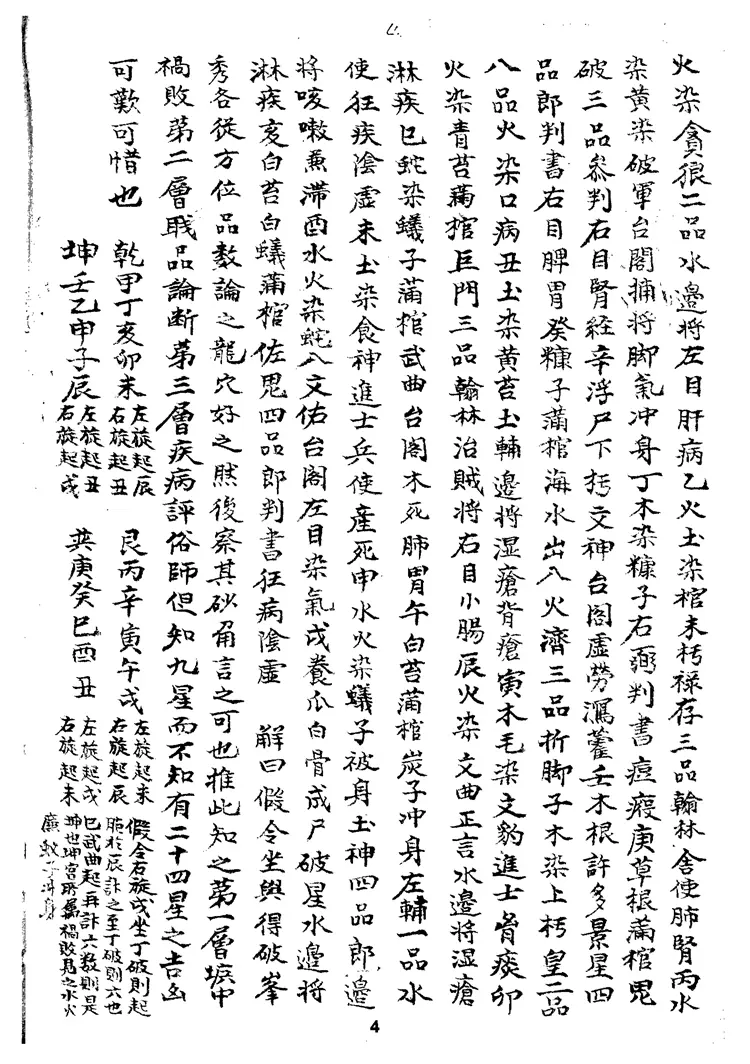 火染貪狼二品水邊將左目肝病乙火土染棺未朽祿存三品翰林舍使肺腎丙水
染黃染破軍台閣捕將脚氣冲身丁木染糠子右弼判書痘瘢庚草根滿棺鬼
破三品叅判右目腎経辛浮尸下朽文神台閣虛勞瀉藿壬木根許多景星四
品郎判書右目脾胃癸糠子滿棺海水出入火濟三品折脚子木染上朽皇二品
八品火染口病丑土染黃苔土輔邊將湿瘡背瘡寅木毛染文豹進士胷痰卯
火染青苔滿棺巨門三品翰林治賊將右目小腸辰火染文曲正言水邊將湿瘡
淋疾巳蛇染蟻子滿棺武曲台閣木死肺胃午白苔滿棺炭子冲身左輔一品水
使狂疾陰虛未土染食神進士兵使産死申水火染蟻子被身土神四品郎邊
將咳嗽熏滞酉水火染蛇八文佑台閣左目染氣戌養爪白骨成尸破星水邊將
淋疾亥白苔白蟻滿棺佐鬼四品郎判書狂病陰虛 解曰假令坐與得破峯
秀各従方位品数論之龍穴好之然後察其砂角言之可也推此知之第一層壙中
禍敗第二層職品論断第三層疾病評俗師但知九星而不知有二十四星之吉凶
可歎可惜也 乾甲丁亥卯未 左旋起辰
右旋起丑 艮丙辛寅午戌 左旋起未
右旋起辰
坤壬乙申子辰 左旋起丑
右旋起戌 巽庚癸巳酉丑 左旋起戌
右旋起未
假令右旋戌坐丁破則起
胞於辰計之至丁破則六也
巳武曲起再計六数則是
坤也坤宮所属禍敗見之水火
蟻子冲身
4